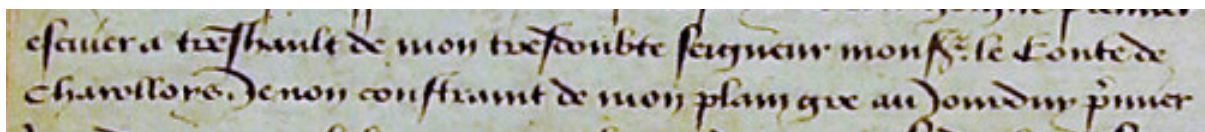 escuier a treshault de mon tresdoubte seigneur monsr. le Conte de
Charollois Je non constraint de mon plain gre au Jourduy p̄mier